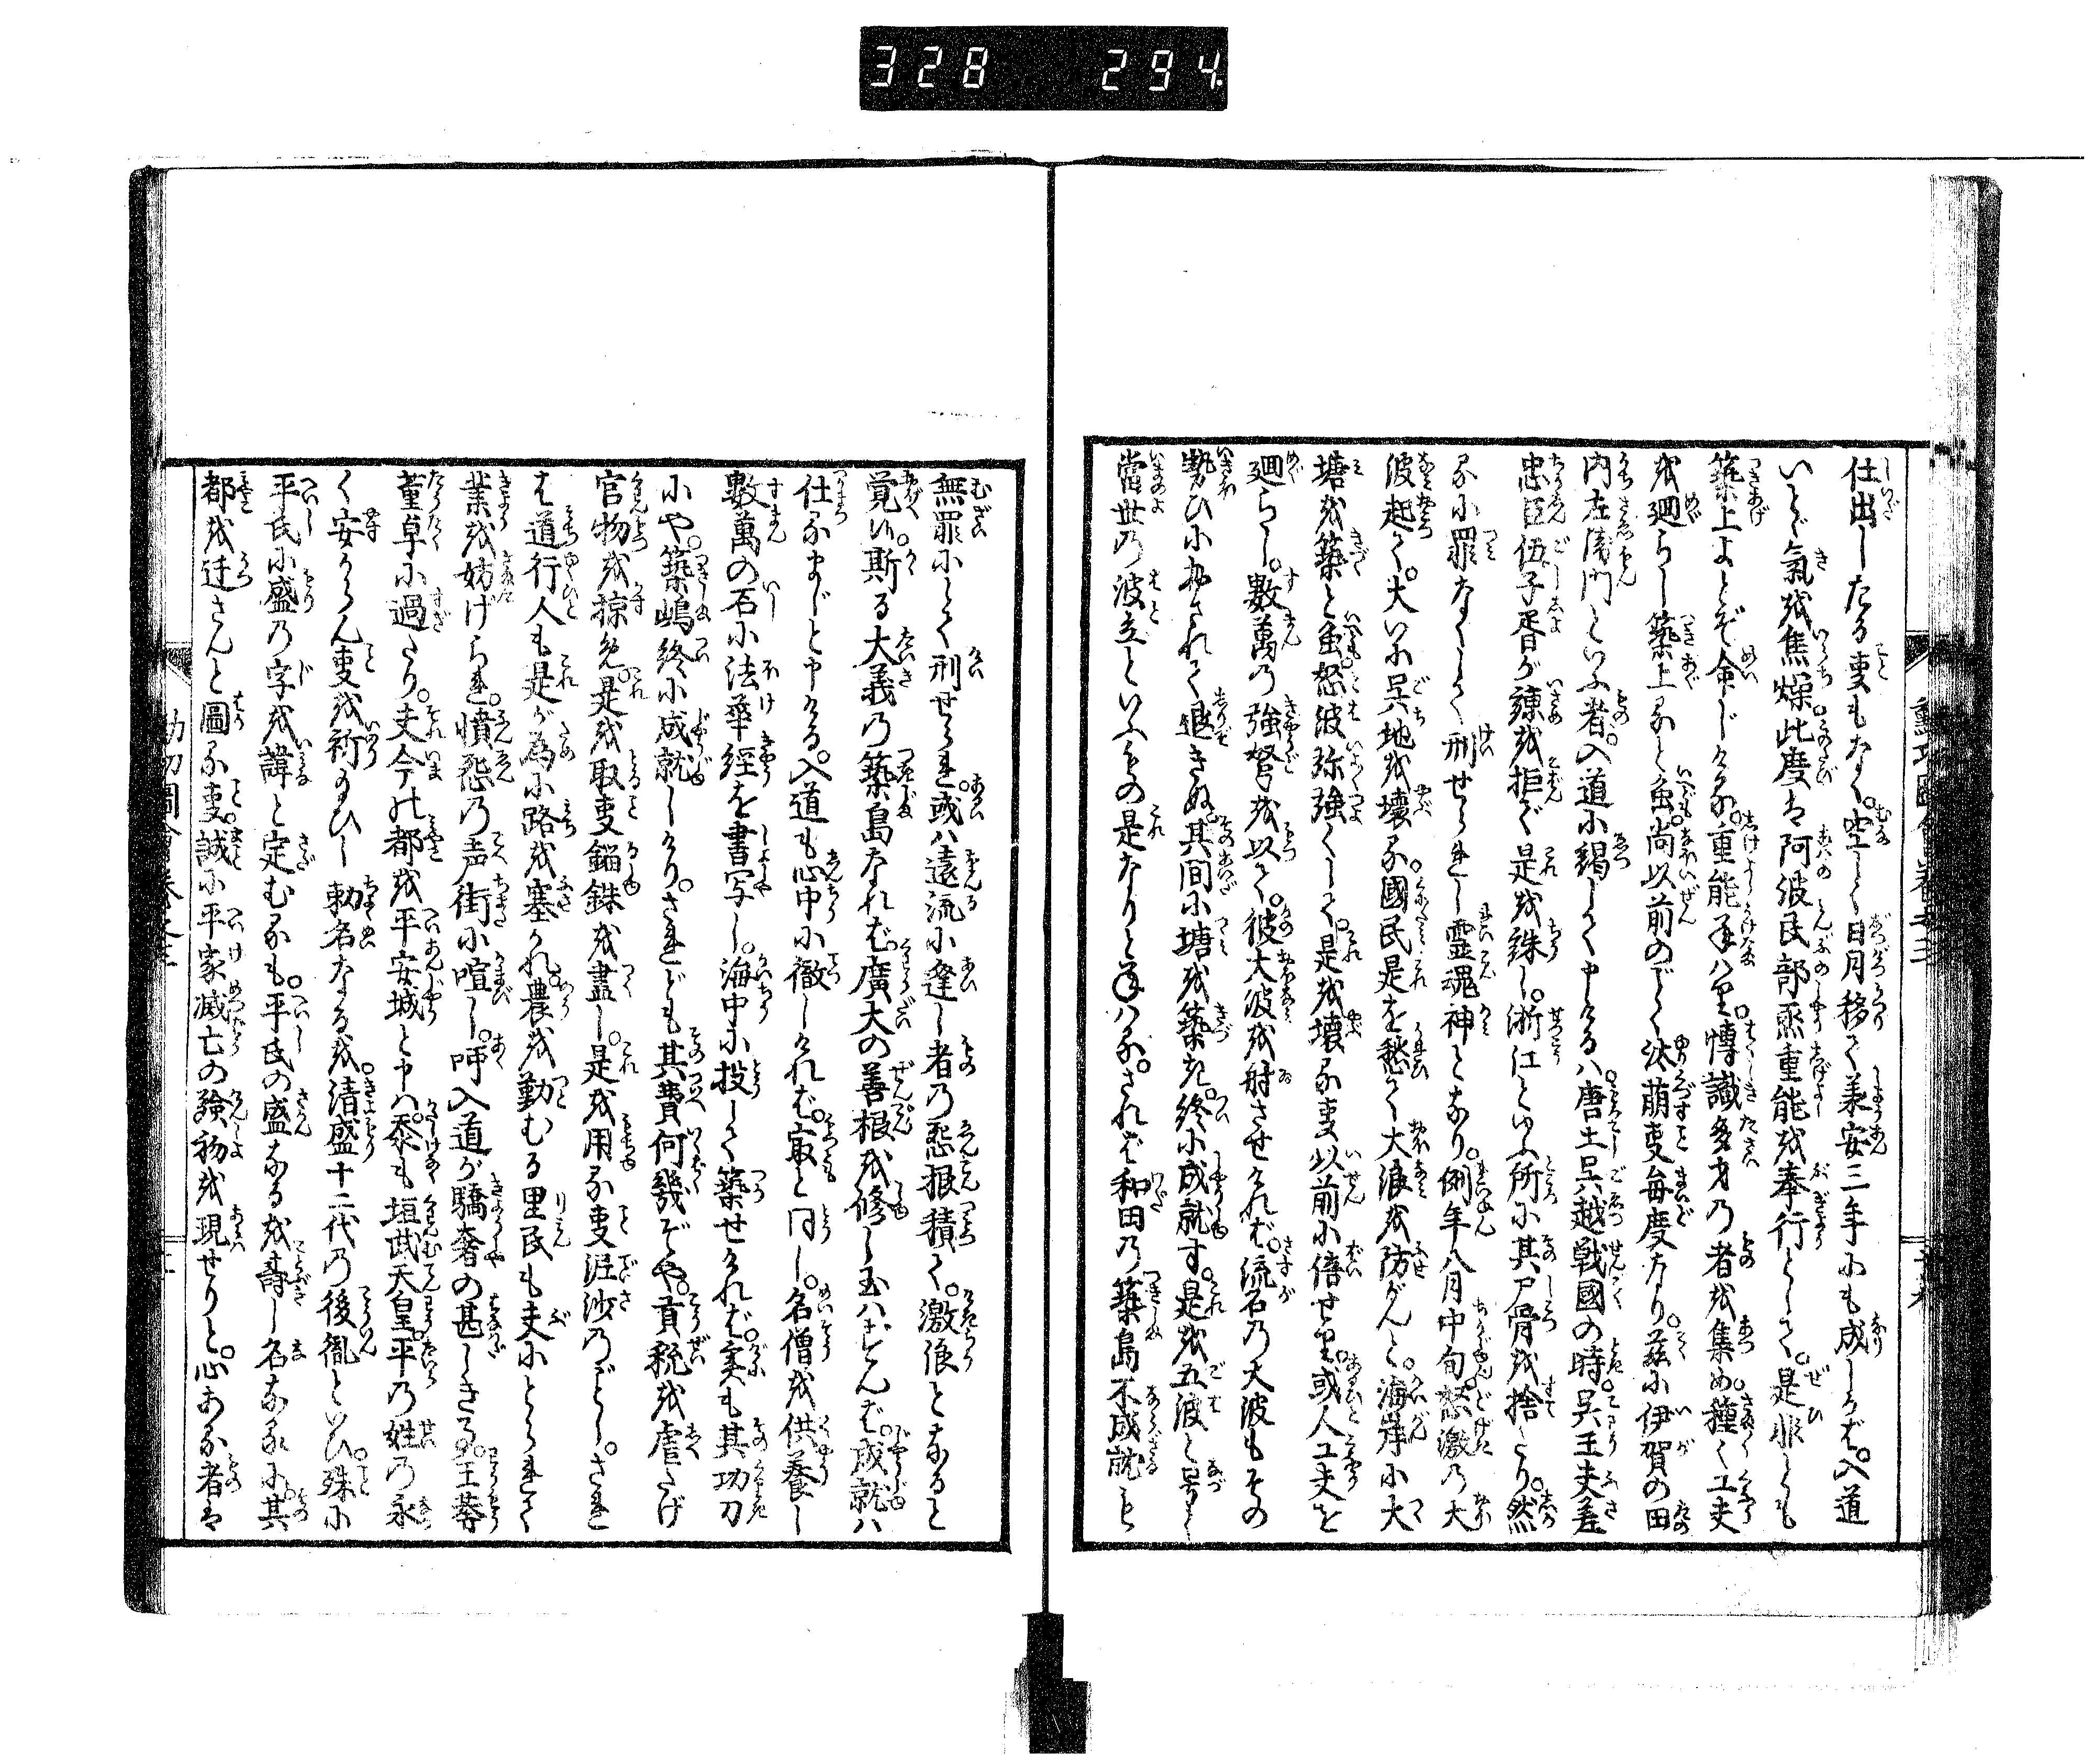 328 294.
仕出したる事もなく。空しく日月移て承安三年にも成しかば。入道
いとゞ氣を焦燥。此度は阿波民部烝重能を奉行として。是非とも
築上よとぞ命じける。重能承はり。博識多才の者を集め。種〻工夫
を廻らし築上ると雖。尚以前のごく汰崩事毎度なり。茲に伊賀の田
内左衛門といふ者。入道に謁して申けるは。唐土呉越戦國の時。呉王夫差
忠臣伍子胥が諌を拒ぐ。是を誅し。浙江といふ所に其尸骨を捨たり。然
るに罪なくして刑せられし霊魂神となり。例年八月中旬。怒激の大
波起て。大いに呉地を壊る。國民是を愁て大浪を防がんと。海岸に大
塘を築と雖。怒波弥強くして。是を壊る事以前に倍せり。或人工夫を
廻らし。數萬の強弩を以て。彼大波を射させければ。流石の大波もその
勢ひに和されて退きぬ。其間に塘を築き。終に成就す。是を五波と号く。
當世の波立といふもの是なりと承はる。されば和田の築島不成就も
無罪にして刑せられ。或は遠流に逢し者の怨根積て。激浪となると
覚ゆ。斯る大義の築島なれば。廣大の善根を修し玉はずんば。成就は
仕るまじと申ける。入道も心中に徹しければ。宲と同し。名僧を供養し
數萬の石に法華經を書写し。海中に投して築せければ。実も其功力
にや。築嶋終に成就しけり。されども其費何幾ぞや。貢税を虐たげ
官物を掠め。是を取事錙銖を盡し。是を用る事泥沙のごとし。され
ば道行人も是が為に路を塞がれ。農を勤むる里民も夫にとられて
業を妨げられ。憤怨の声街に喧し。呼入道が驕奢の甚しき事。王莽
董卓に過たり。夫今の都を平安城と申は。忝も垣武天皇。平の姓の永
く安からん事を祈玉ひし勅名なるを。清盛十二代の後胤といひ。殊に
平氏に盛の字を諱と定むるも。平氏の盛なるを壽し名なるに。其
都を迁さんと圖る事。誠に平家滅亡の験物を現せりと。心ある者は